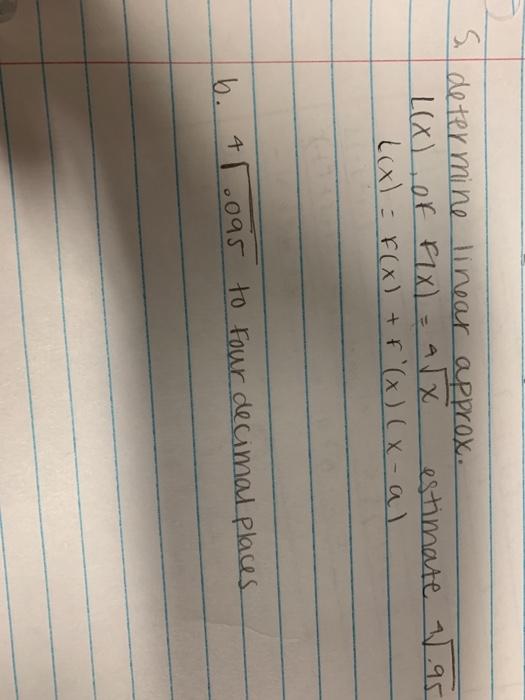 5. determine linear approx.
L(x), of F(x) = ∜x estimate ∜.95
L(x) = F(x) + F'(x)(x-a)
b. ∜.095 to four decimal places